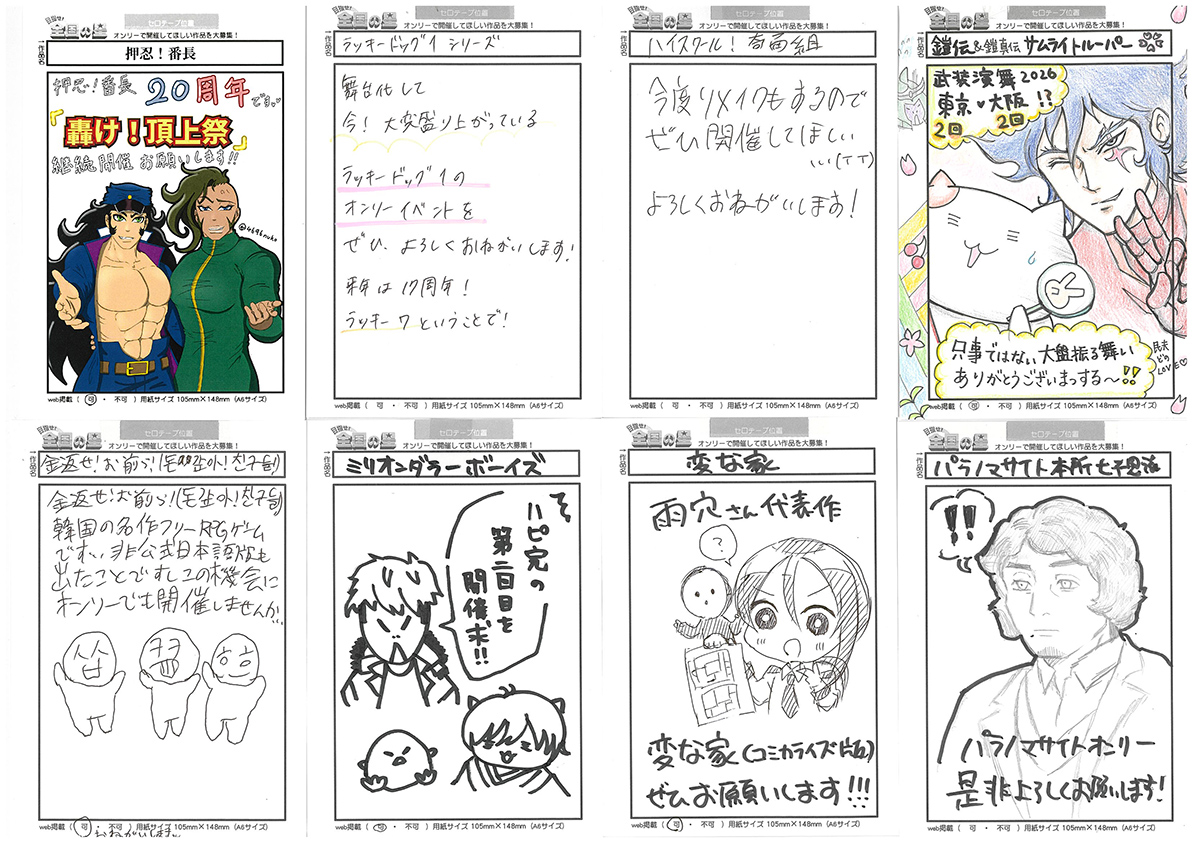 セロテープ位置
目指せ!
全国の畳
オンリーで開催してほしい作品を大募集!
作品名
押忍!番長
押忍!番長 20周年です。
『轟け!頂上祭』
継続開催 お願いします!!
@4696nuko
web掲載( 可 ・ 不可 )用紙サイズ 105mm×148mm(A6サイズ)
セロテープ位置
目指せ!
オンリーで開催してほしい作品を大募集!
作品名
ラッキードッグ1 シリーズ
舞台化して
今!大変盛り上がっている
ラッキードッグ1の
オンリーイベントを
ぜひ、よろしくおねがいします!
来年は17周年!
ラッキー7ということで!
web掲載( 可 ・ 不可 )用紙サイズ 105mm×148mm(A6サイズ)
セロテープ位置
目指せ!
オンリーで開催してほしい作品を大募集!
作品名
ハイスクール!奇面組
今度リメイクもするので
ぜひ開催してほしい
いい(TT)
よろしくおねがいします!
web掲載( 可 ・ 不可 )用紙サイズ 105mm×148mm(A6サイズ)
セロテープ位置
目指せ!
オンリーで開催してほしい作品を大募集!
作品名
鎧伝&鎧真伝サムライトルーパー
武装演舞2026
東京♥大阪!?
2回 2回
只事ではない大盤振る舞い
ありがとうございまっする〜!!
LOVE♡
web掲載( 可 ・ 不可 )用紙サイズ 105mm×148mm(A6サイズ)
セロテープ位置
目指せ!
オンリーで開催してほしい作品を大募集!
作品名
金返せ!お前ら!(돈 갚아!친구들)
金返せ!お前ら!(돈 갚아!친구들)
韓国の名作フリーRPGゲーム
です。非公式日本語版も
出たことですしこの機会に
オンリーでも開催しませんか。
web掲載( 可 ・ 不可 )用紙サイズ 105mm×148mm(A6サイズ)
おねがいします。
セロテープ位置
目指せ!
オンリーで開催してほしい作品を大募集!
作品名
ミリオンダラーボーイズ
ハピ完の
第二回目を
開催求!!
web掲載( 可 ・ 不可 )用紙サイズ 105mm×148mm(A6サイズ)
セロテープ位置
目指せ!
オンリーで開催してほしい作品を大募集!
作品名
変な家
雨穴さん代表作
?
変な家(コミカライズ版)
ぜひお願いします!!!
web掲載( 可 ・ 不可 )用紙サイズ 105mm×148mm(A6サイズ)
セロテープ位置
目指せ!
オンリーで開催してほしい作品を大募集!
作品名
パラノマサイト本所七不思議
!!
パラノマサイトオンリー
是非よろしくお願いします!
web掲載( 可 ・ 不可 )用紙サイズ 105mm×148mm(A6サイズ)